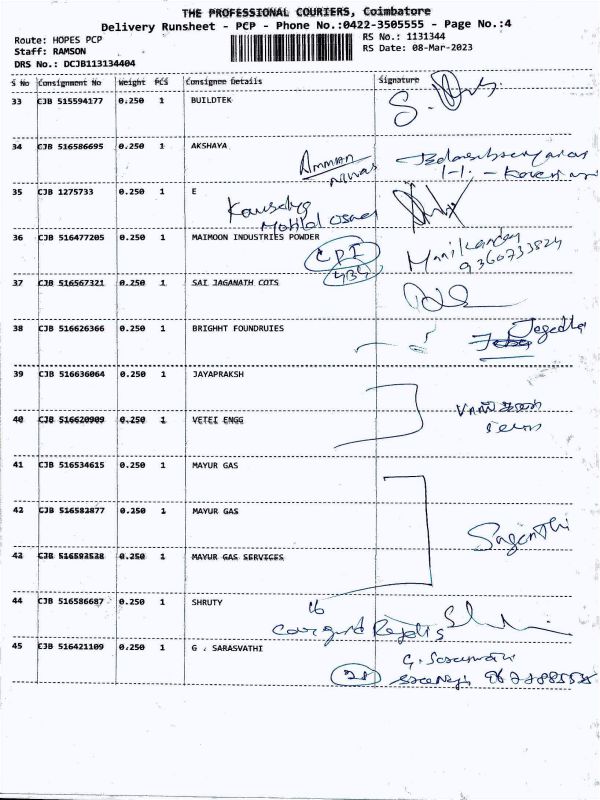 THE PROFESSIONAL COURIERS, Coimbatore
Delivery Runsheet - PCP - Phone No.:0422-3505555 - Page No.:4
Route: HOPES PCP
RS No.: 1131344
Staff: RAMSON
RS Date: 08-Mar-2023
DRS No.: DCJB113134404
S No Consignment No Weight PCS Consignee Details Signature
33 CJB 515594177 0.250 1 BUILDTEK
34 CJB 516586695 0.250 1 AKSHAYA
Amman
35 CJB 1275733 0.250 1 E
36 CJB 516477205 0.250 1 MAIMOON INDUSTRIES POWDER
CPI
Manikandan
9360733524
434
37 CJB 516567321 0.250 1 SAI JAGANATH COTS
38 CJB 516626366 0.250 1 BRIGHHT FOUNDRUIES
39 CJB 516636064 0.250 1 JAYAPRAKSH
40 CJB 516620909 0.250 1 VETEI ENGG
41 CJB 516534615 0.250 1 MAYUR GAS
42 CJB 516582877 0.250 1 MAYUR GAS
43 CJB 516593528 0.250 1 MAYUR GAS SERVICES
44 CJB 516586687 0.250 1 SHRUTY
45 CJB 516421109 0.250 1 G . SARASVATHI
28